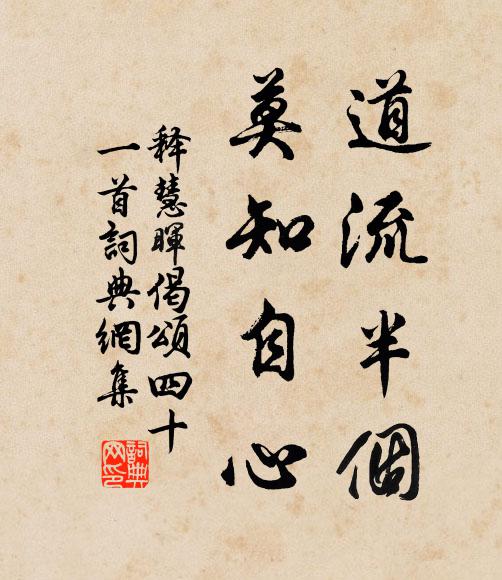 道流半個
莫知自心
释慧暉偈頌四十
一首詞典網集
詞典网印